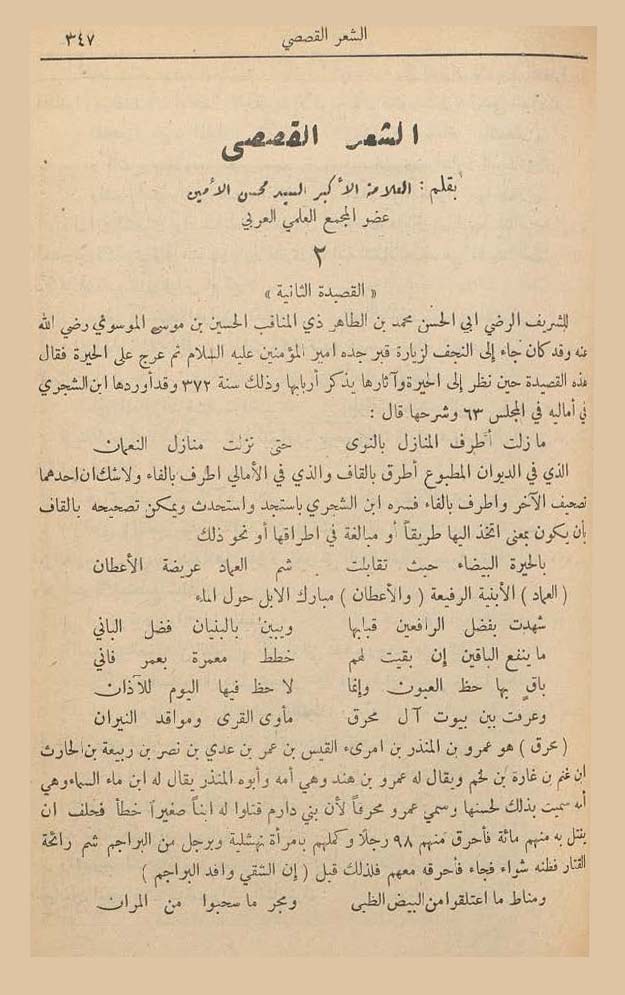 الشعر القصصي ٣٤٧
الشعر القصصي
بقلم : العلامة الأكبر السيد محسن الأمين
عضو المجمع العلمي العربي
٢
« القصيدة الثانية »
للشريف الرضي ابي الحسن محمد بن الطاهر ذي المناقب الحسين بن موسى الموسوي رضي الله
عنه وقد كان جاء إلى النجف لزيارة قبر جده امير المؤمنين عليه السلام ثم عرج على الحيرة فقال
هذه القصيدة حين نظر إلى الحيرة وآثارها يذكر أربابها وذلك سنة ٣٧٢ وقد أوردها ابن الشجري
في أماليه في المجلس ٦٣ وشرحها قال :
ما زلت أطرف المنازل بالنوى حتى نزلت منازل النعمان
الذي في الديوان المطبوع أطرق بالقاف والذي في الأمالي اطرف بالفاء ولا شك ان احدهما
تصحيف الآخر واطرف بالفاء فسره ابن الشجري باستجد واستحدث ويمكن تصحيحه بالقاف
بأن يكون بمعنى اتخذ اليها طريقاً أو مبالغة في اطراقها أو نحو ذلك
بالحيرة البيضاء حيث تقابلت شم العماد عريضة الأعطان
( العماد ) الأبنية الرفيعة ( والأعطان ) مبارك الابل حول الماء
شهدت بفضل الرافعين قبابها ويبين بالبنيان فضل الباني
ما ينفع الباقين إن بقيت لهم خطط معمرة بعمر فاني
باقٍ بها حظ العيون وإنما لا حظ فيها اليوم للآذان
وعرفت بين بيوت آل محرق مأوى القرى ومواقد النيران
( محرق ) هو عمرو بن المنذر بن امرىء القيس بن عمر بن عدي بن نصر بن ربيعة بن الحارث
ابن غنم بن غارة بن لخم ويقال له عمرو بن هند وهي أمه وأبوه المنذر يقال له ابن ماء السماء وهي
أمه سميت بذلك لحسنها وسمي عمرو محرقاً لأن بني دارم قتلوا له ابناً صغيراً خطأ فحلف ان
يقتل به منهم مائة فأحرق منهم ٩٨ رجلا وكملهم بامرأة نهشلية وبرجل من البراجم شم رائحة
القتار فظنه شواء فجاء فأحرقه معهم فلذلك قيل ( إن الشقي وافد البراجم )
ومناط ما اعتلقوا من البيض الظبى ومجر ما سحبوا من المران